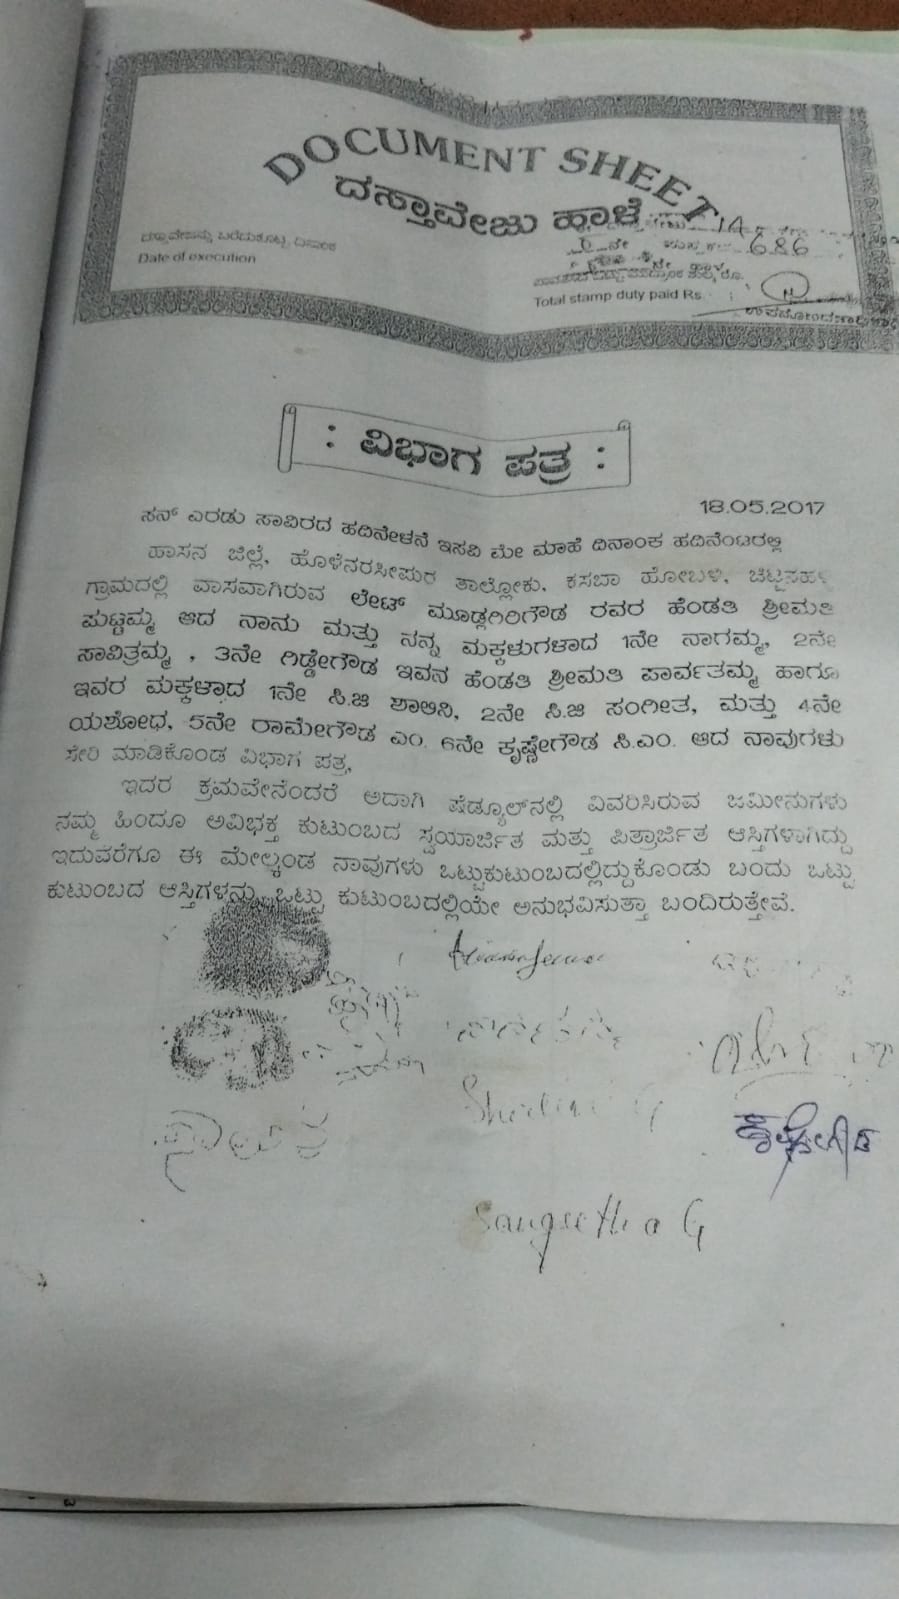 DOCUMENT SHEET
ದಸ್ತಾವೇಜು ಹಾಳೆ
14
686
ದಸ್ತಾವೇಜನ್ನು ಬರೆದುಕೊಟ್ಟ ದಿನಾಂಕ
Date of execution
Total stamp duty paid Rs.
: ವಿಭಾಗ ಪತ್ರ :
18.05.2017
ಸನ್ ಎರಡು ಸಾವಿರದ ಹದಿನೇಳನೆ ಇಸವಿ ಮೇ ಮಾಹೆ ದಿನಾಂಕ ಹದಿನೆಂಟರಲ್ಲಿ
ಹಾಸನ ಜಿಲ್ಲೆ, ಹೊಳೆನರಸೀಪುರ ತಾಲ್ಲೋಕು, ಕಸಬಾ ಹೋಬಳಿ,
ಗ್ರಾಮದಲ್ಲಿ ವಾಸವಾಗಿರುವ ಲೇಟ್ ಮೂಡ್ಲಗಿರಿಗೌಡ ರವರ ಹೆಂಡತಿ ಶ್ರೀಮತಿ
ಪುಟ್ಟಮ್ಮ ಆದ ನಾನು ಮತ್ತು ನನ್ನ ಮಕ್ಕಳುಗಳಾದ 1ನೇ ನಾಗಮ್ಮ, 2ನೇ
ಸಾವಿತ್ರಮ್ಮ , 3ನೇ ಗಿಡ್ಡೇಗೌಡ ಇವನ ಹೆಂಡತಿ ಶ್ರೀಮತಿ ಪಾರ್ವತಮ್ಮ ಹಾಗೂ
ಇವರ ಮಕ್ಕಳಾದ 1ನೇ ಸಿ.ಜಿ ಶಾಲಿನಿ, 2ನೇ ಸಿ.ಜಿ ಸಂಗೀತ, ಮತ್ತು 4ನೇ
ಯಶೋಧ, 5ನೇ ರಾಮೇಗೌಡ ಎಂ. 6ನೇ ಕೃಷ್ಣೇಗೌಡ ಸಿ.ಎಂ. ಆದ ನಾವುಗಳು
ಸೇರಿ ಮಾಡಿಕೊಂಡ ವಿಭಾಗ ಪತ್ರ,
ಇದರ ಕ್ರಮವೇನೆಂದರೆ ಅದಾಗಿ ಷೆಡ್ಯೂಲ್‌ನಲ್ಲಿ ವಿವರಿಸಿರುವ ಜಮೀನುಗಳು
ನಮ್ಮ ಹಿಂದೂ ಅವಿಭಕ್ತ ಕುಟುಂಬದ ಸ್ವಯಾರ್ಜಿತ ಮತ್ತು ಪಿತ್ರಾರ್ಜಿತ ಆಸ್ತಿಗಳಾಗಿದ್ದು
ಇದುವರೆಗೂ ಈ ಮೇಲ್ಕಂಡ ನಾವುಗಳು ಒಟ್ಟುಕುಟುಂಬದಲ್ಲಿದ್ದುಕೊಂಡು ಬಂದು ಒಟ್ಟು
ಕುಟುಂಬದ ಆಸ್ತಿಗಳನ್ನು ಒಟ್ಟು ಕುಟುಂಬದಲ್ಲಿಯೇ ಅನುಭವಿಸುತ್ತಾ ಬಂದಿರುತ್ತೇವೆ.
Sangeetha G